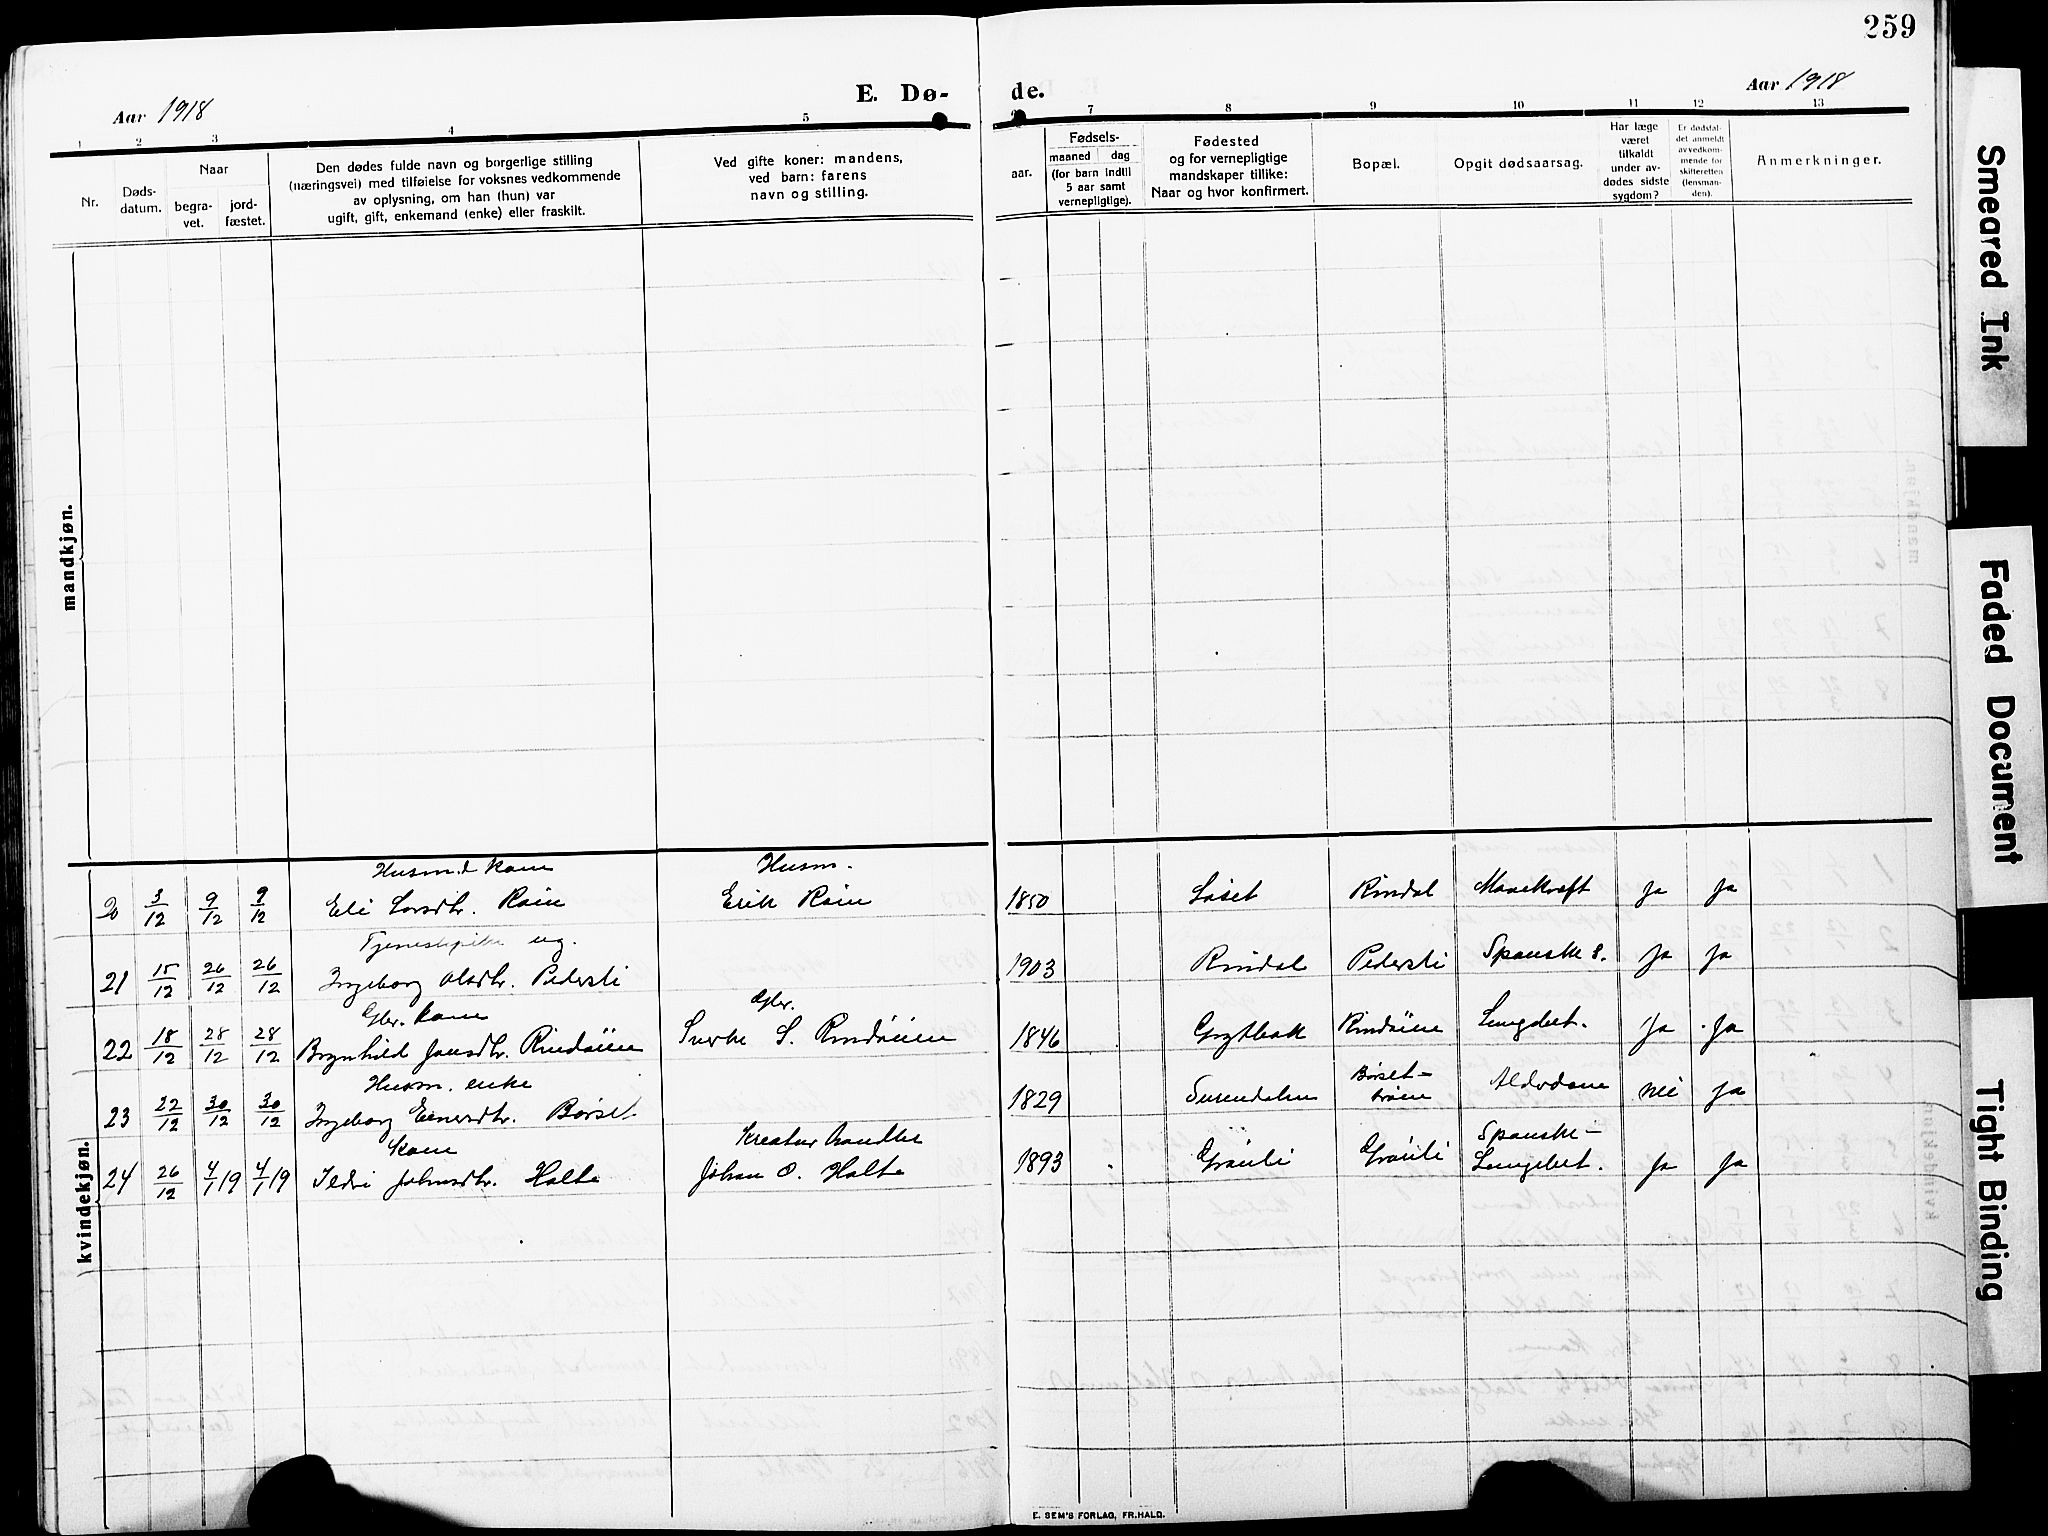 259
Aar 1918
E. Dø-
de.
Aar 1918
1 2 3 4 5
7 8 9 10 11 12 13
Nr.
Døds-
datum.
Naar
begra-
vet.
jord-
fæstet.
Den dødes fulde navn og borgerlige stilling
(næringsvei) med tilføielse for voksnes vedkommende
av oplysning, om han (hun) var
ugift, gift, enkemand (enke) eller fraskilt.
Ved gifte koner: mandens,
ved barn: farens
navn og stilling.
aar.
Fødsels-
maaned dag
(for barn indtil
5 aar samt
vernepligtige).
Fødested
og for vernepligtige
mandskaper tillike:
Naar og hvor konfirmert.
Bopæl.
Opgit dødsaarsag.
Har læge
været
tilkaldt
under av-
dødes sidste
sygdom?
Er dødsfal-
det anmeldt
av vedkom-
mende for
skifteretten
(lensman-
den).
Anmerkninger.
mandkjøn.
kvindekjøn.
Husm.d kone Husm.
20 3/12 9/12 9/12 Eli Larsdtr. Røin Erik Røin 1850 Løset Rindal Mavekræft Ja Ja
Tjenestepike ug.
21 15/12 26/12 26/12 Ingeborg Olsdtr. Pedersli 1903 Rindal Pedersli Spanske s. Ja Ja
Gbr. kone Gbr.
22 18/12 28/12 28/12 Brynhild Jonsdtr. Rindøien Sverke S. Rindøien 1846 Grytbak Rindøien Lungebet. Ja Ja
Husm. enke
23 22/12 30/12 30/12 Ingeborg Einersdtr. Børset 1829 Surendalen Børset- trøen Alderdom nei Ja
Kone Kreatur handler
24 26/12 4/1 19 4/1 19 Ildri Johnsdtr. Holte Johan O. Holte 1893 Grønli Grønli Spanske- Lungebet. Ja Ja
E. SEM'S FORLAG, FR.HALD.
Smeared Ink
Faded Document
Tight Binding